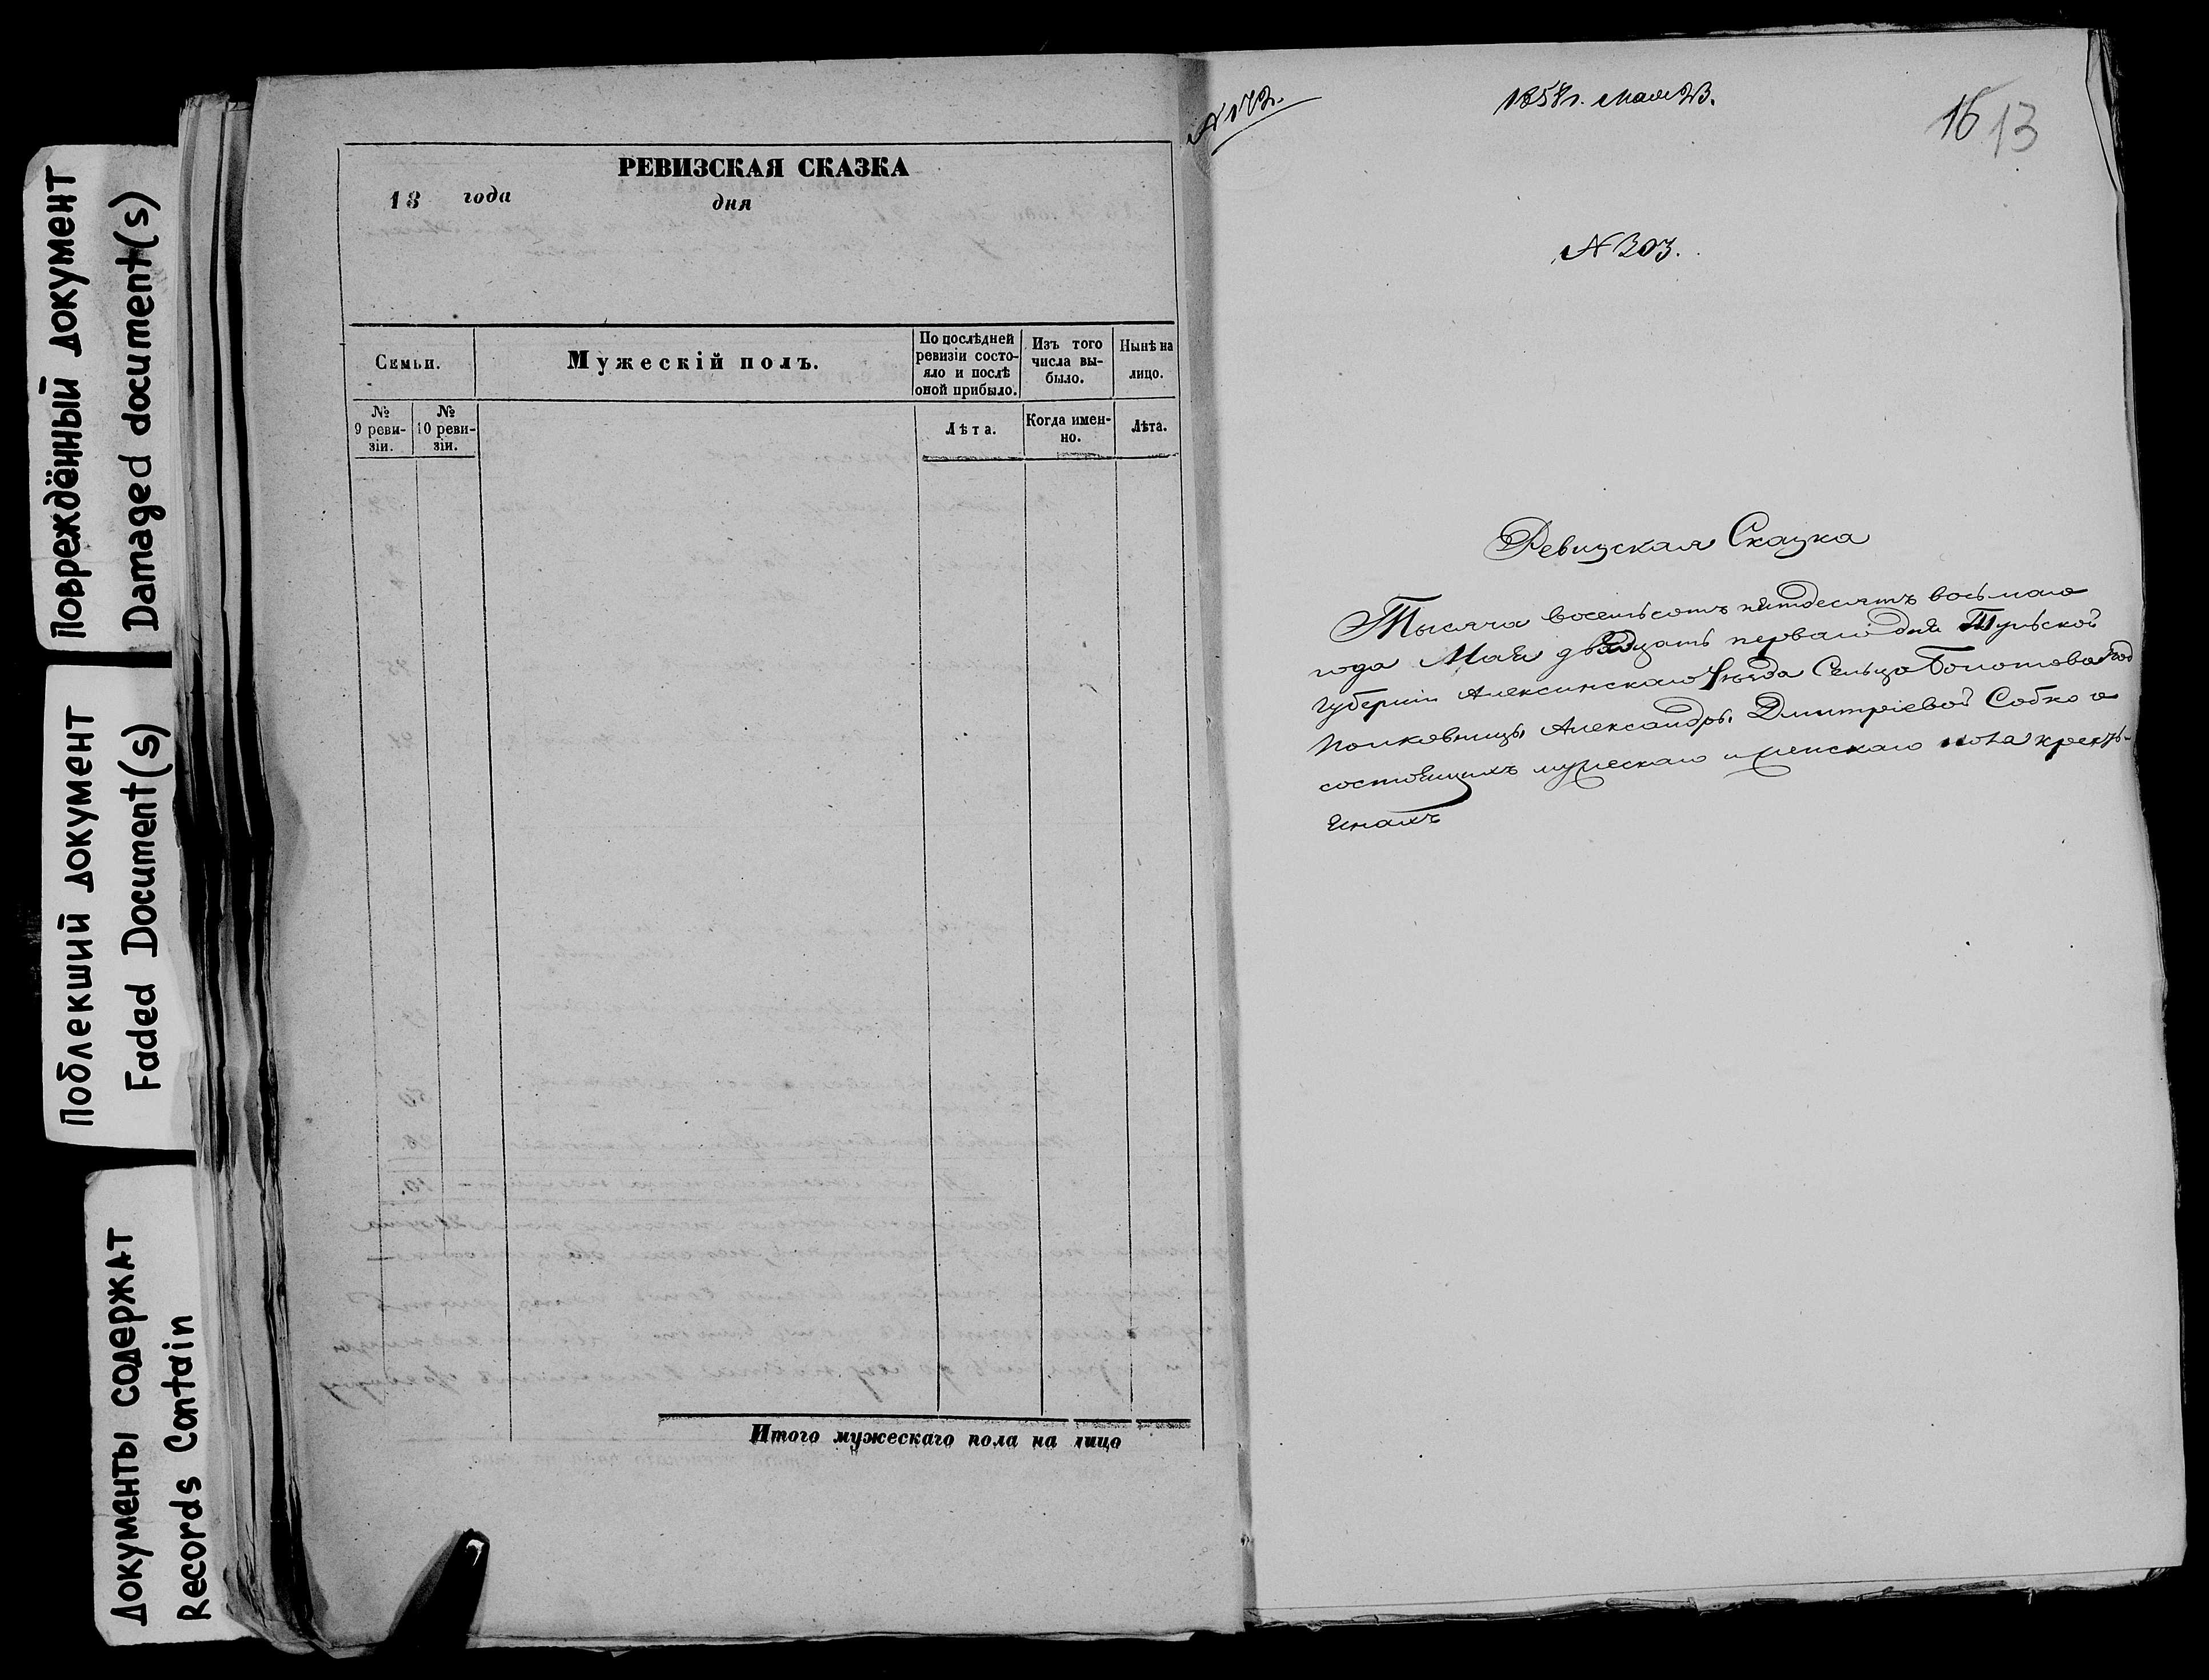 Повреждённый документ
Damaged document(s)
Поблекший документ
Faded Document(s)
Документы содержат
Records Contain
РЕВИЗСКАЯ СКАЗКА
18 года дня
Семьи.
Мужескій полъ.
По послѣдней ревизіи состо-
яло и послѣ
оной прибыло.
Изъ того
числа вы-
было.
Нынѣ на
лицо.
№
9 реви-
зіи.
№
10 реви-
зіи.
Лѣта.
Когда имен-
но.
Лѣта.
Итого мужескаго пола на лицо
1858 г. Мая 23.
16 13
N 203.
Ревизская Сказка
Тысяча восемьсотъ пятдесятъ восьмаго
года Мая двадцать перваго дня Тульской
губерніи Алексинскаго Уѣзда Сельца Болотова Под
полковницы Александры Дмитріевой Собко о
состоящихъ мужескаго и женскаго пола кресть-
янахъ